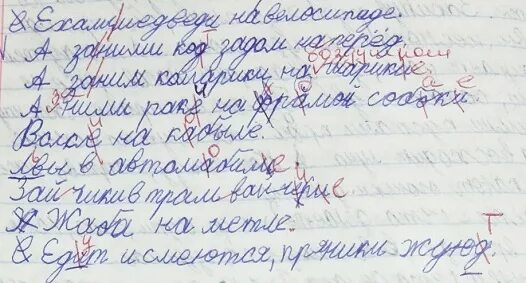 & Ехали медведи на велосипеде.
А заними код задом на пё рёд.
А заним комарики на шарике
А зними раке на хромой собаки
Волке на кабыле.
Лвы в автомабиле
Зай чики в трам вайчике
Жаба на метле.
& Едит и смеются, пряники жуюд.